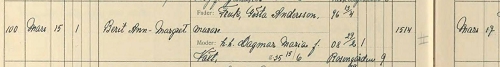 Fader: Gösta Andersson, 96 4/4
100 Mars 15 1 Berit Ann-Margret murare 1514 Mars 17
Moder: h. h. Dagmar Maria f. 08 29/2 1
25 15/6 Rosengården 9